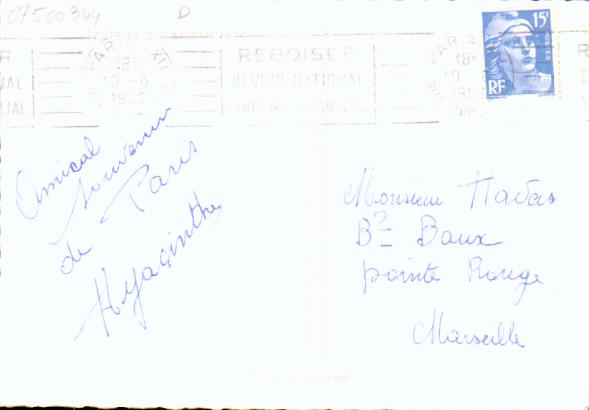 07500344
D
PARIS XII
18H
19-6
REBOISER
DEVOIR NATIONAL
PLACEMENT FAMILIAL
15F
RF
Amical
souvenir
de Paris
Hyacinthe
Monsieur
Bd Baux
pointe Rouge
Marseille